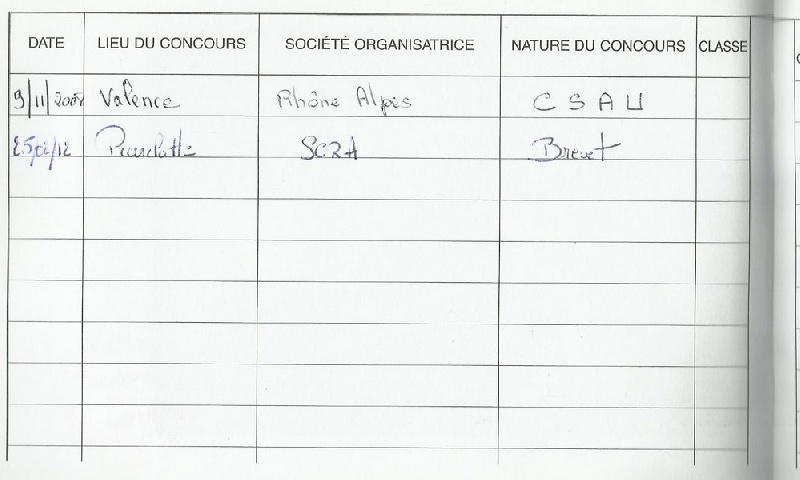 DATE LIEU DU CONCOURS SOCIÉTÉ ORGANISATRICE NATURE DU CONCOURS CLASSE
9/11/2008 Valence Rhône Alpes C S A U
SCRA Brevet